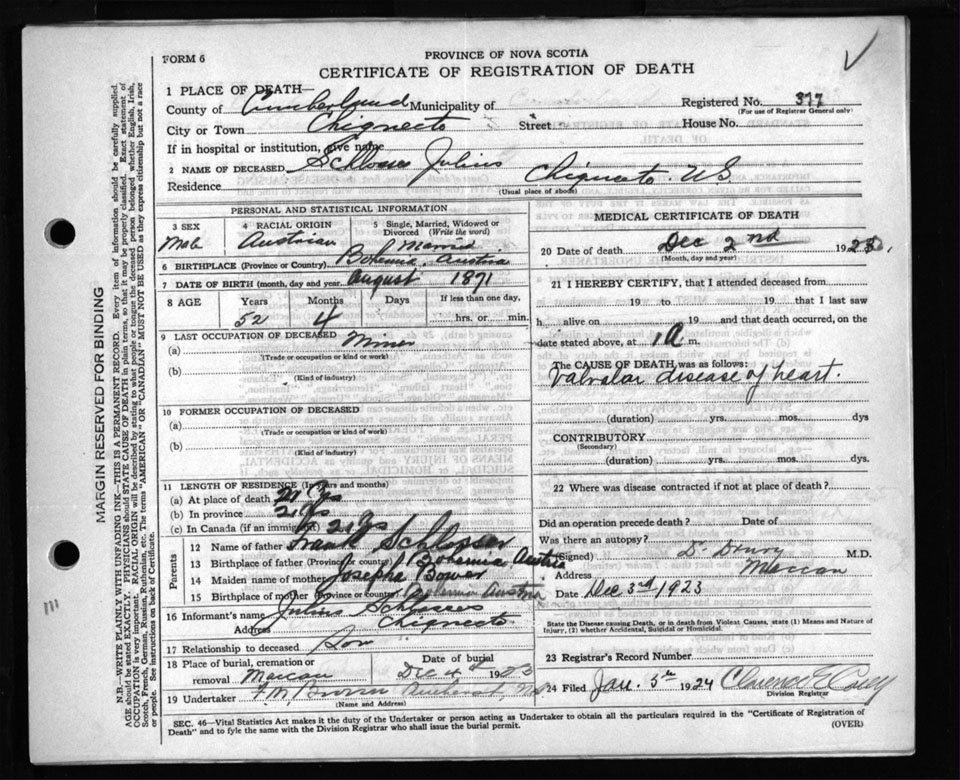 FORM 6
PROVINCE OF NOVA SCOTIA
CERTIFICATE OF REGISTRATION OF DEATH
1 PLACE OF DEATH—
County of Cumberland Municipality of Registered No. 377
(For use of Registrar General only)
City or Town Chignecto Street House No.
If in hospital or institution, give name
2 NAME OF DECEASED Schlosser Julius
Residence Chignecto NS
(Usual place of abode)
PERSONAL AND STATISTICAL INFORMATION
3 SEX 4 RACIAL ORIGIN 5 Single, Married, Widowed or Divorced (Write the word)
Male Austrian Married
6 BIRTHPLACE (Province or Country) Bohemia, Austria
7 DATE OF BIRTH (month, day and year) August 1871
8 AGE Years Months Days If less than one day,
52 4 hrs. or min.
9 LAST OCCUPATION OF DECEASED
(a) Miner
(Trade or occupation or kind or work)
(b)
(Kind of industry)
10 FORMER OCCUPATION OF DECEASED
(a)
(Trade or occupation or kind of work)
(b)
(Kind of industry)
11 LENGTH OF RESIDENCE (In years and months)
(a) At place of death yrs
(b) In province 21 yrs
(c) In Canada (if an immigrant) 21 yrs
Parents
12 Name of father Frank Schlosser
13 Birthplace of father (Province or country) Bohemia Austria
14 Maiden name of mother Josepha Bower
15 Birthplace of mother (Province or country) Bohemia Austria
16 Informant's name Julius Schlosser
Address Chignecto
17 Relationship to deceased Son
18 Place of burial, cremation or removal Maccan Date of burial Dec 4th 1923
19 Undertaker F. M. Brown Amherst, NS
(Name and Address)
MEDICAL CERTIFICATE OF DEATH
20 Date of death Dec 2nd 1923.
(Month, day and year)
21 I HEREBY CERTIFY, that I attended deceased from
19 to 19 that I last saw
h alive on 19 and that death occurred, on the
date stated above, at 1 A m.
The CAUSE OF DEATH was as follows:
Valvular disease of heart.
(duration) yrs. mos. dys
CONTRIBUTORY
(Secondary)
(duration) yrs. mos. dys.
22 Where was disease contracted if not at place of death?
Did an operation precede death? Date of
Was there an autopsy?
(Signed) Dr Drury M.D.
Address Maccan
Date Dec 3rd 1923
State the Disease causing Death, or in death from Violent Causes, state (1) Means and Nature of
Injury, (2) whether Accidental, Suicidal or Homicidal.
23 Registrar's Record Number
24 Filed Jan. 5th 1924 Clarence E
Division Registrar
SEC. 46—Vital Statistics Act makes it the duty of the Undertaker or person acting as Undertaker to obtain all the particulars required in the "Certificate of Registration of
Death" and to fyle the same with the Division Registrar who shall issue the burial permit. (OVER)
MARGIN RESERVED FOR BINDING
N.B.—WRITE PLAINLY WITH UNFADING INK—THIS IS A PERMANENT RECORD. Every item of information should be carefully supplied.
AGE should be stated EXACTLY. PHYSICIANS should STATE CAUSE OF DEATH in plain terms, so that it may be properly classified. Exact statement of
OCCUPATION is very important. RACIAL ORIGIN will be described by stating to what people or tongue the deceased person belonged whether English, Irish,
Scotch, French, German, Russian, Ruthenian, etc. The terms "AMERICAN" or "CANADIAN" MUST NOT BE USED as they express citizenship but not a race
or people. See instructions on back of Certificate.